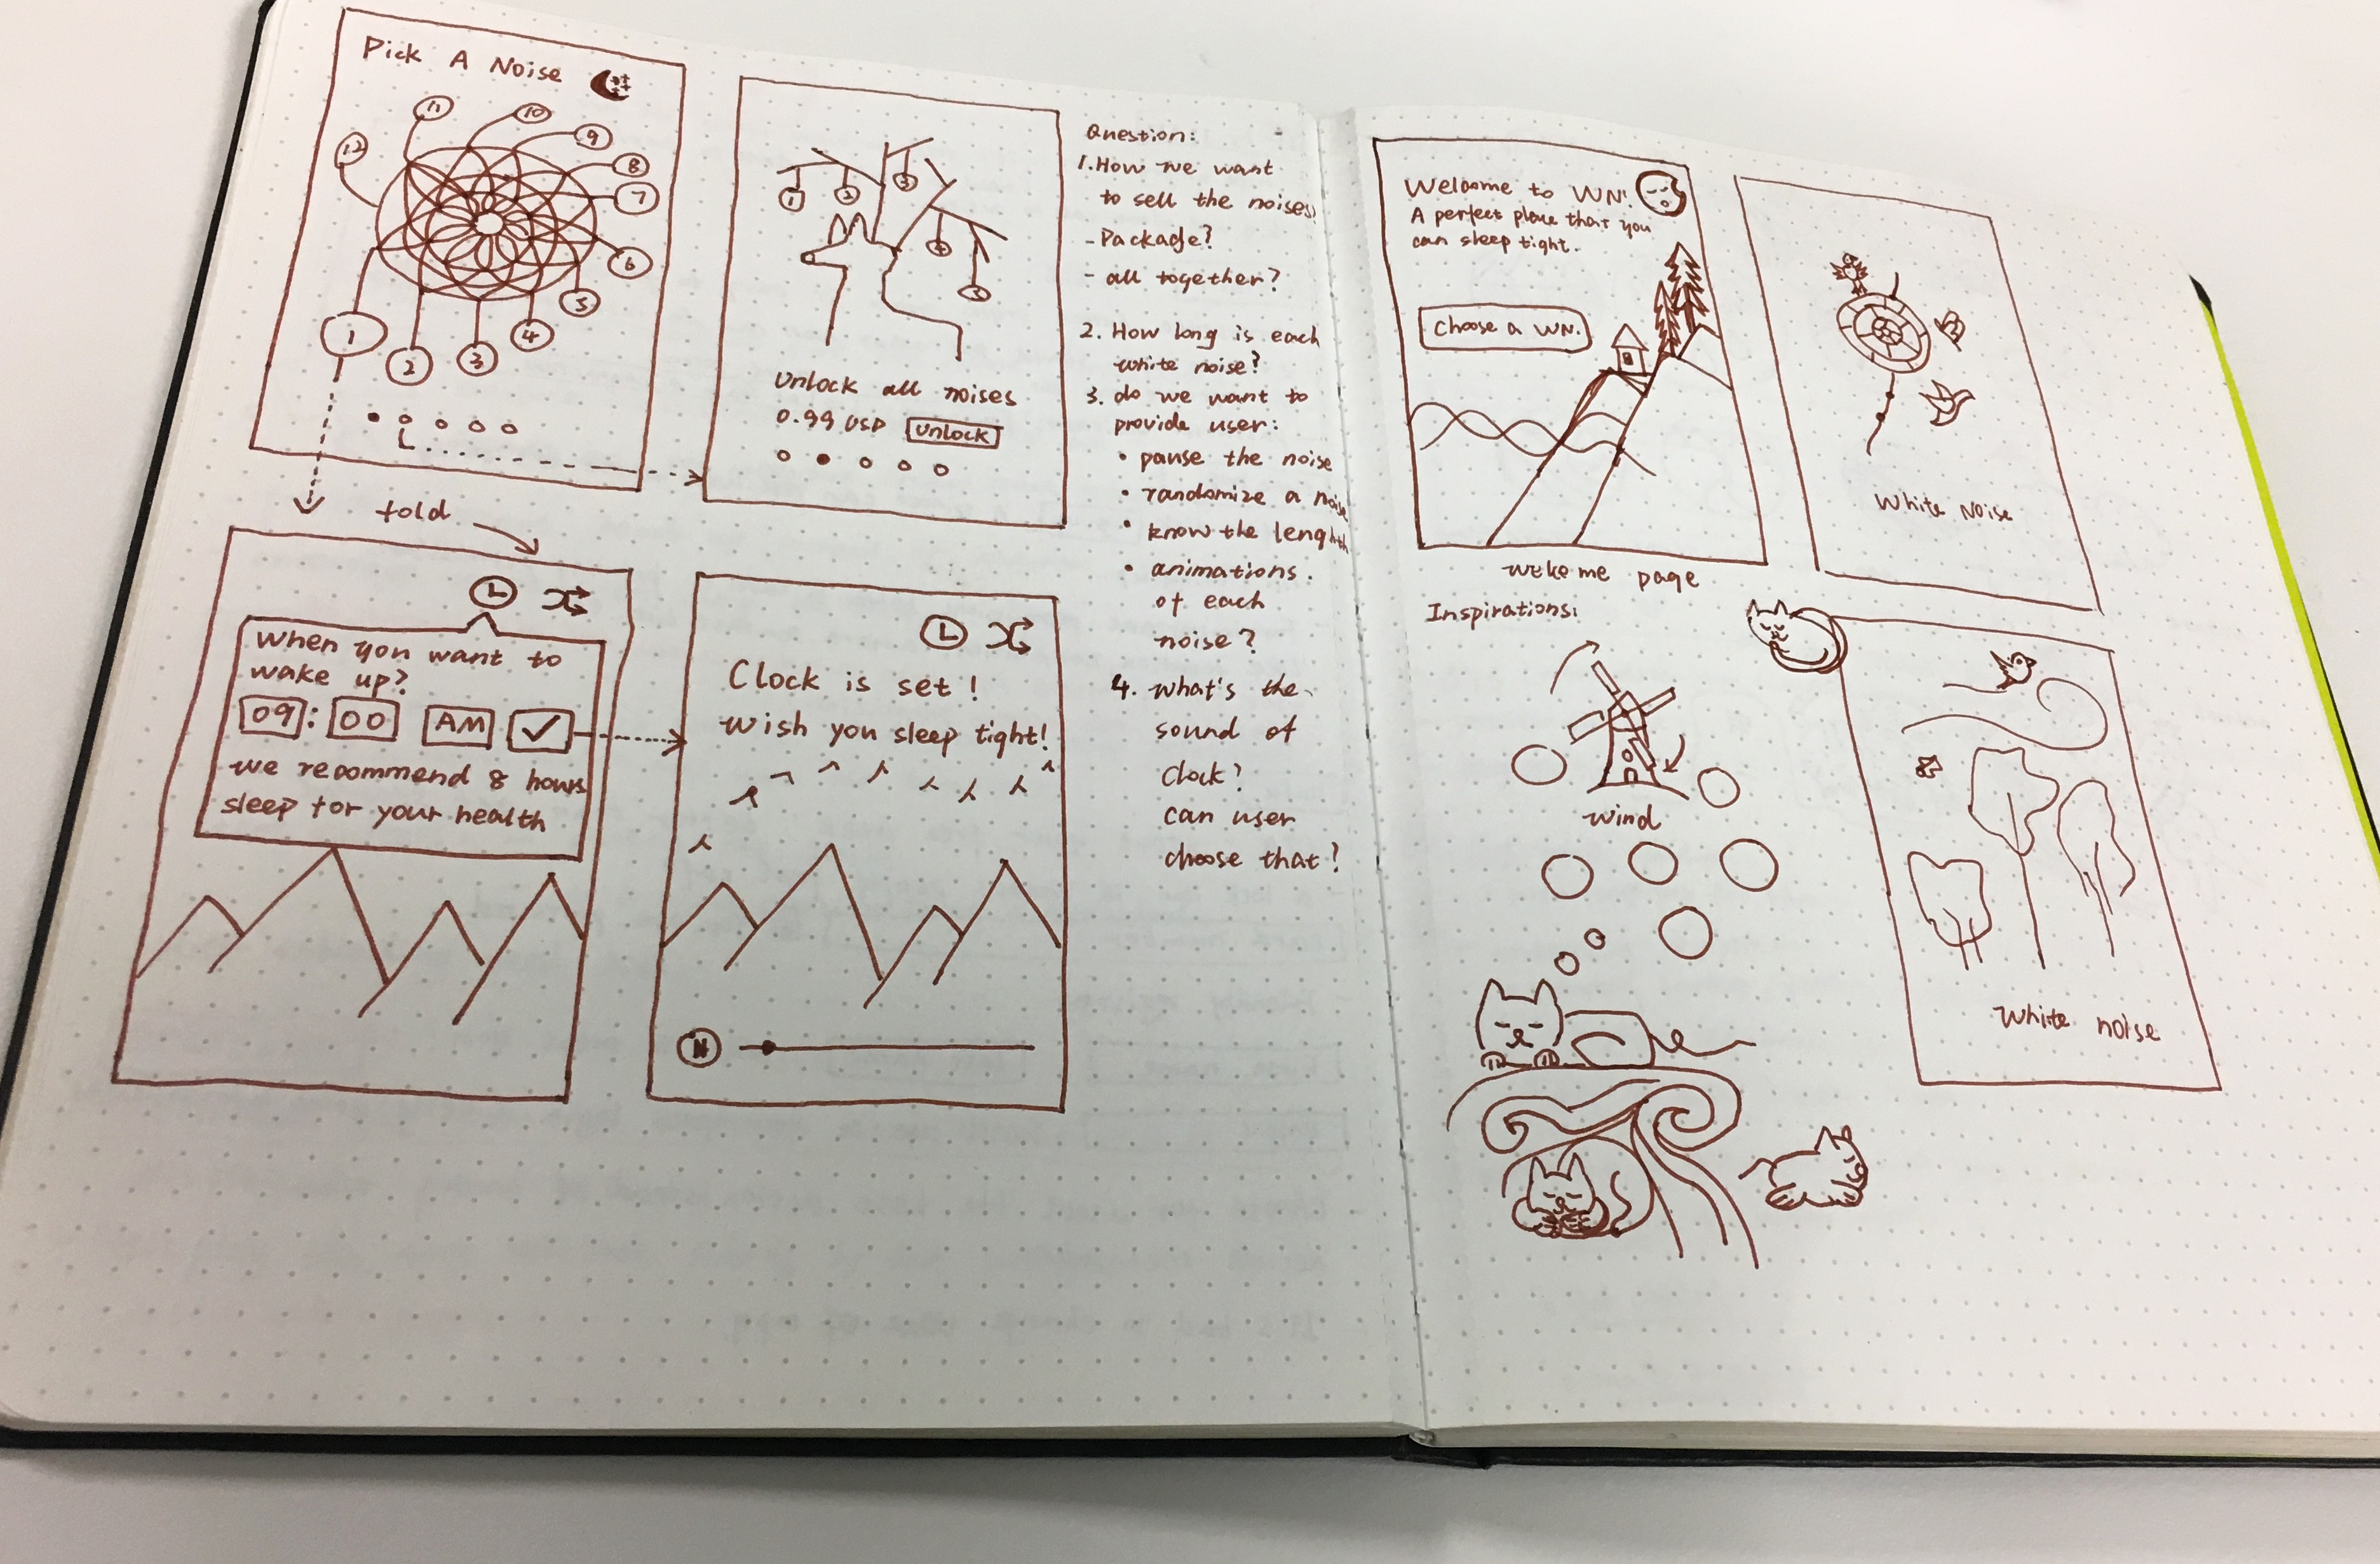 Pick A Noise
11
10
12
9
8
7
6
5
4
1
2
3
1
2
3
4
5
Unlock all noises
0.99 USD Unlock
fold
When you want to
wake up?
09 : 00 AM
we recommend 8 hours
sleep for your health
Clock is set!
Wish you sleep tight!
N
Question:
1. How we want
to sell the noises?
- Package?
- all together?
2. How long is each
white noise?
3. do we want to
provide user:
• pause the noise
• randomize a noise
• know the lenghth
• animations.
of each
noise?
4. what's the
sound of
clock?
can user
choose that?
Welcome to WN!
A perfect place that you
can sleep tight.
Choose a WN.
page
White Noise
Inspirations:
wind
White noise